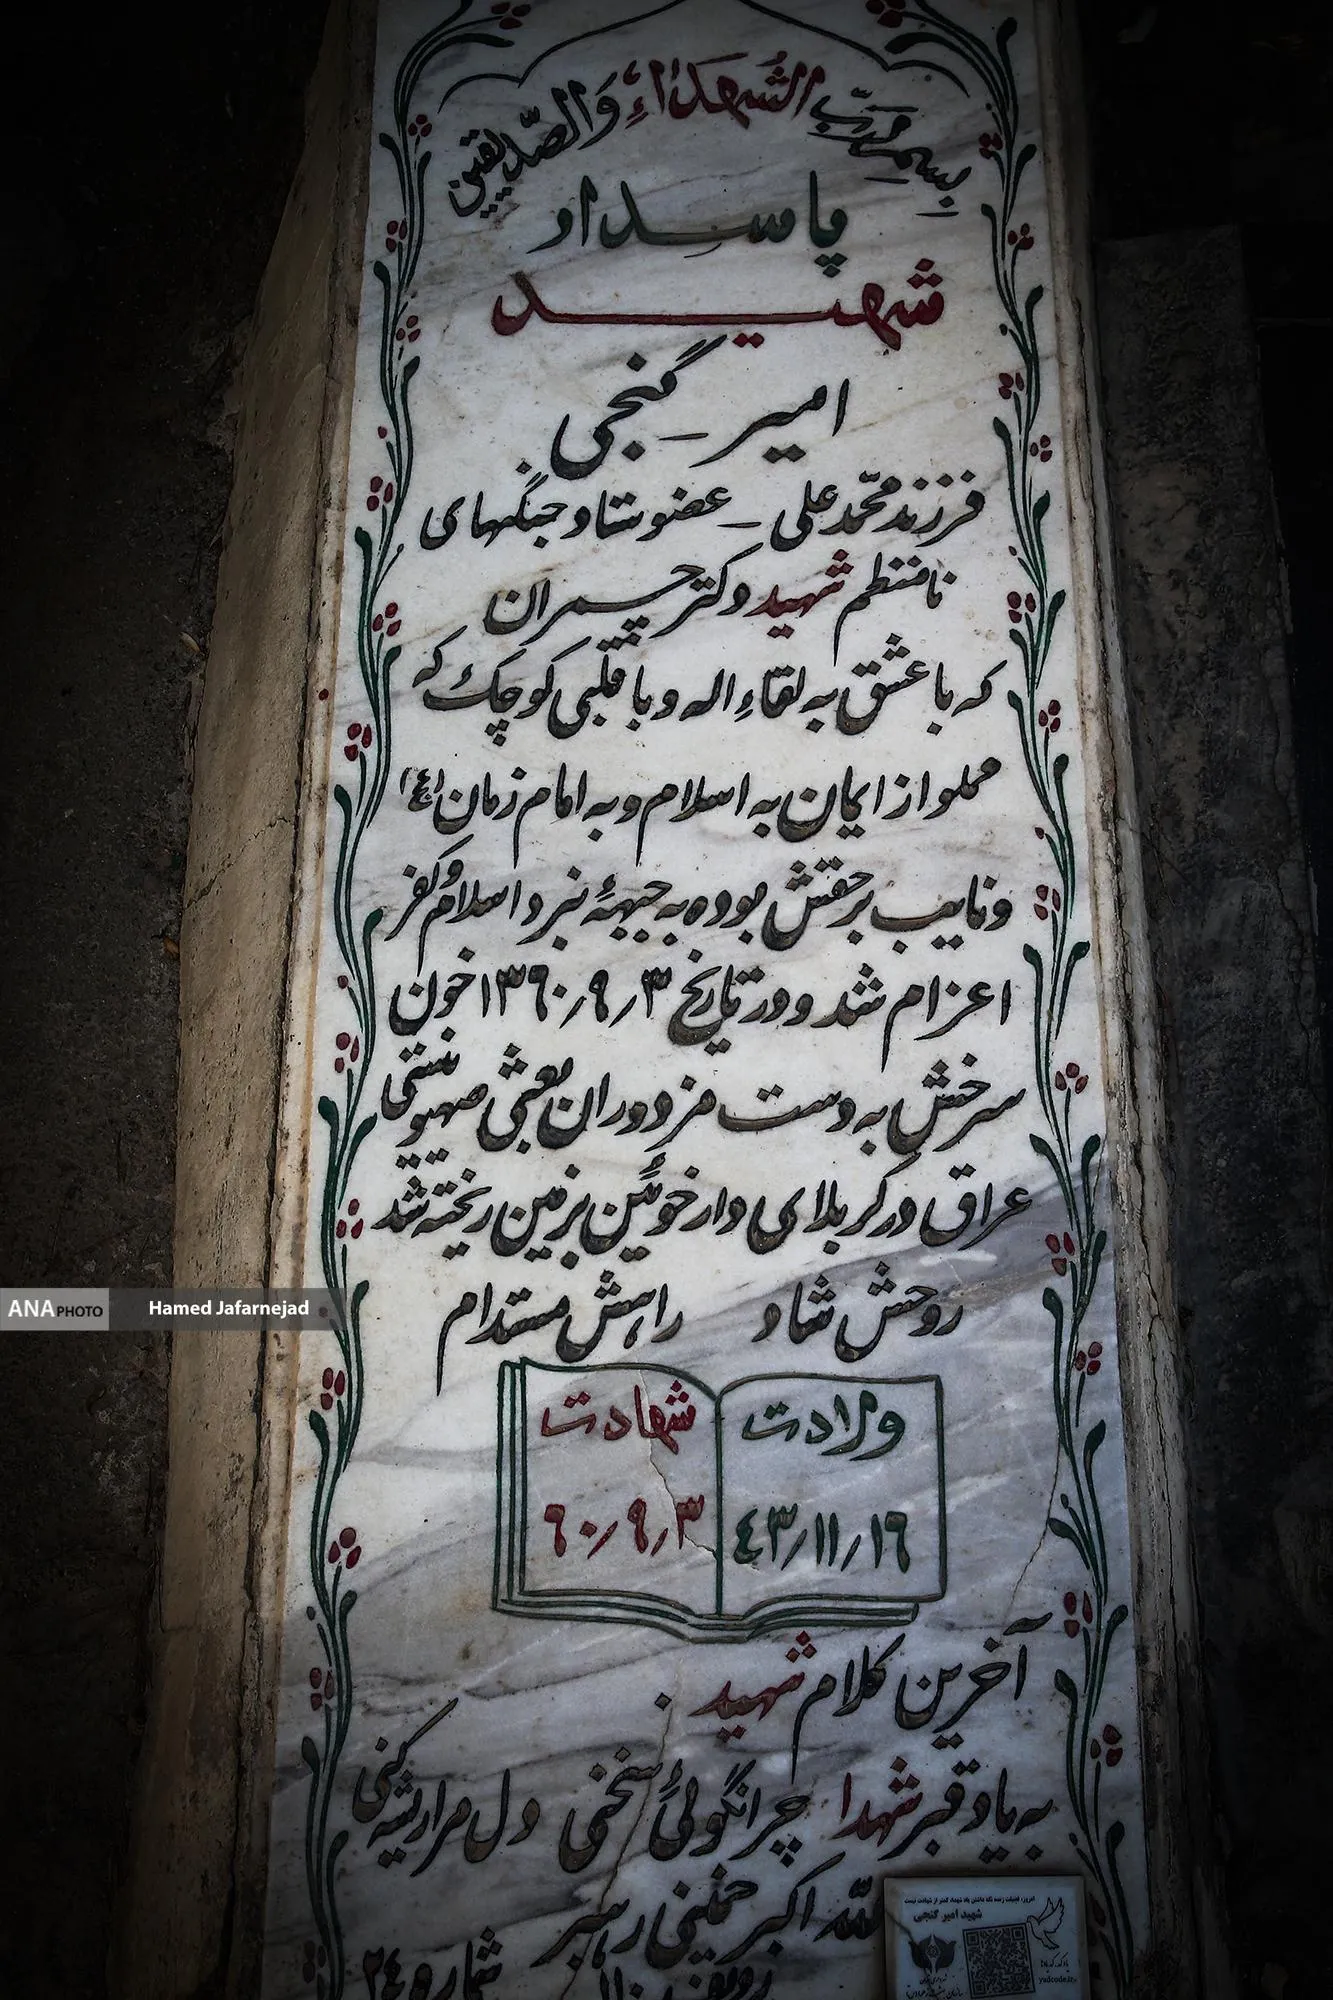 بِسمِ رَبِّ الشُهَدٰاءِ وَالصّدیقین
پاسدار
شهید
امیر گنجی
فرزند محمّد علی - عضو ستاد جنگهای
نامنظم شهید دکتر چمران
که با عشق به لقاءِ اله و با قلبی کوچک که
مملو از ایمان به اسلام و به امام زمان (عج)
و نایب برحقش بوده به جبههٔ نبرد اسلام و کفر
اعزام شد و در تاریخ ۳/۹/۱۳٦۰ خون
سرخش به دست مزدوران بعثی صهیونیستی
عراق در کربلای دارخوئین بر زمین ریخته شد
روحش شاد راهش مستدام
ولادت شهادت
۱٦/۱۱/٤۳ ۳/۹/٦۰
آخرین کلام شهید
به یاد قبر شهدا چرا نگوئی سخنی دل مرا ریشه کنی
اللّه اکبر خمینی رهبر
ردیف شماره ۲٤
امروز، فضیلت زنده نگه داشتن یاد شهدا، کمتر از شهادت نیست
شهید امیر گنجی
yadcode.ir
ANA PHOTO Hamed Jafarnejad